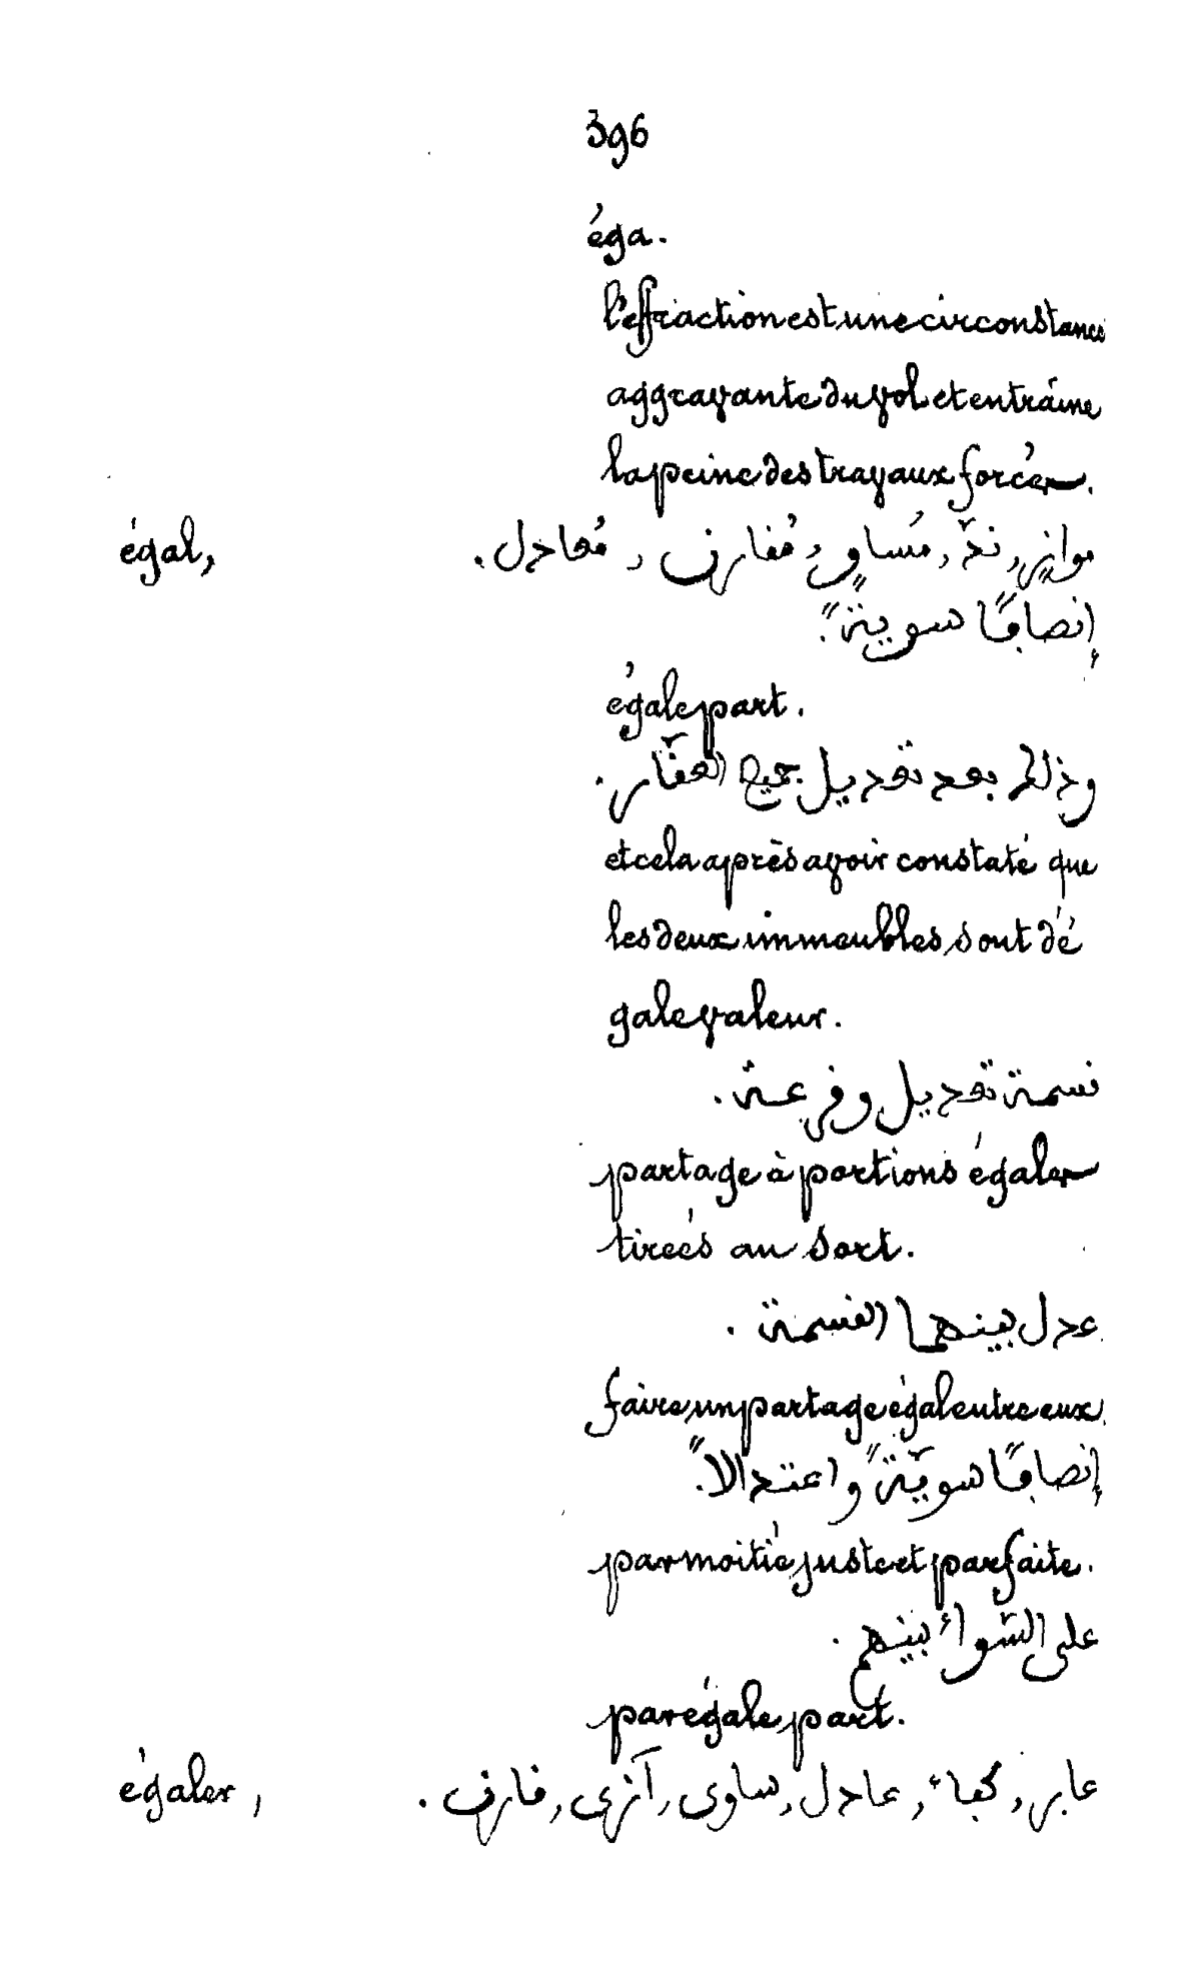 396
éga.
l'effraction est une circonstance
aggravante du vol et entraine
la peine des travaux forcés.
égal, موازٍ, ندّ, مُساوٍ, مُقارن, مُعادل.
إنصافًا سوية.
égale part.
وذلك بعد تعديل جميع العقّار.
et cela après avoir constaté que
les deux immeubles sont d'é
gale valeur.
قسمة تعديل وقرعة.
partage à portions égales
tireés au sort.
عدل بينهما القسمة.
faire un partage égal entre eux.
إنصافًا سويّةً واعتدالاً.
par moitié juste et parfaite.
على السّواء بينهم.
par égale part.
égaler, عابر, كفاء, عادل, ساوى, آزى, قارن.